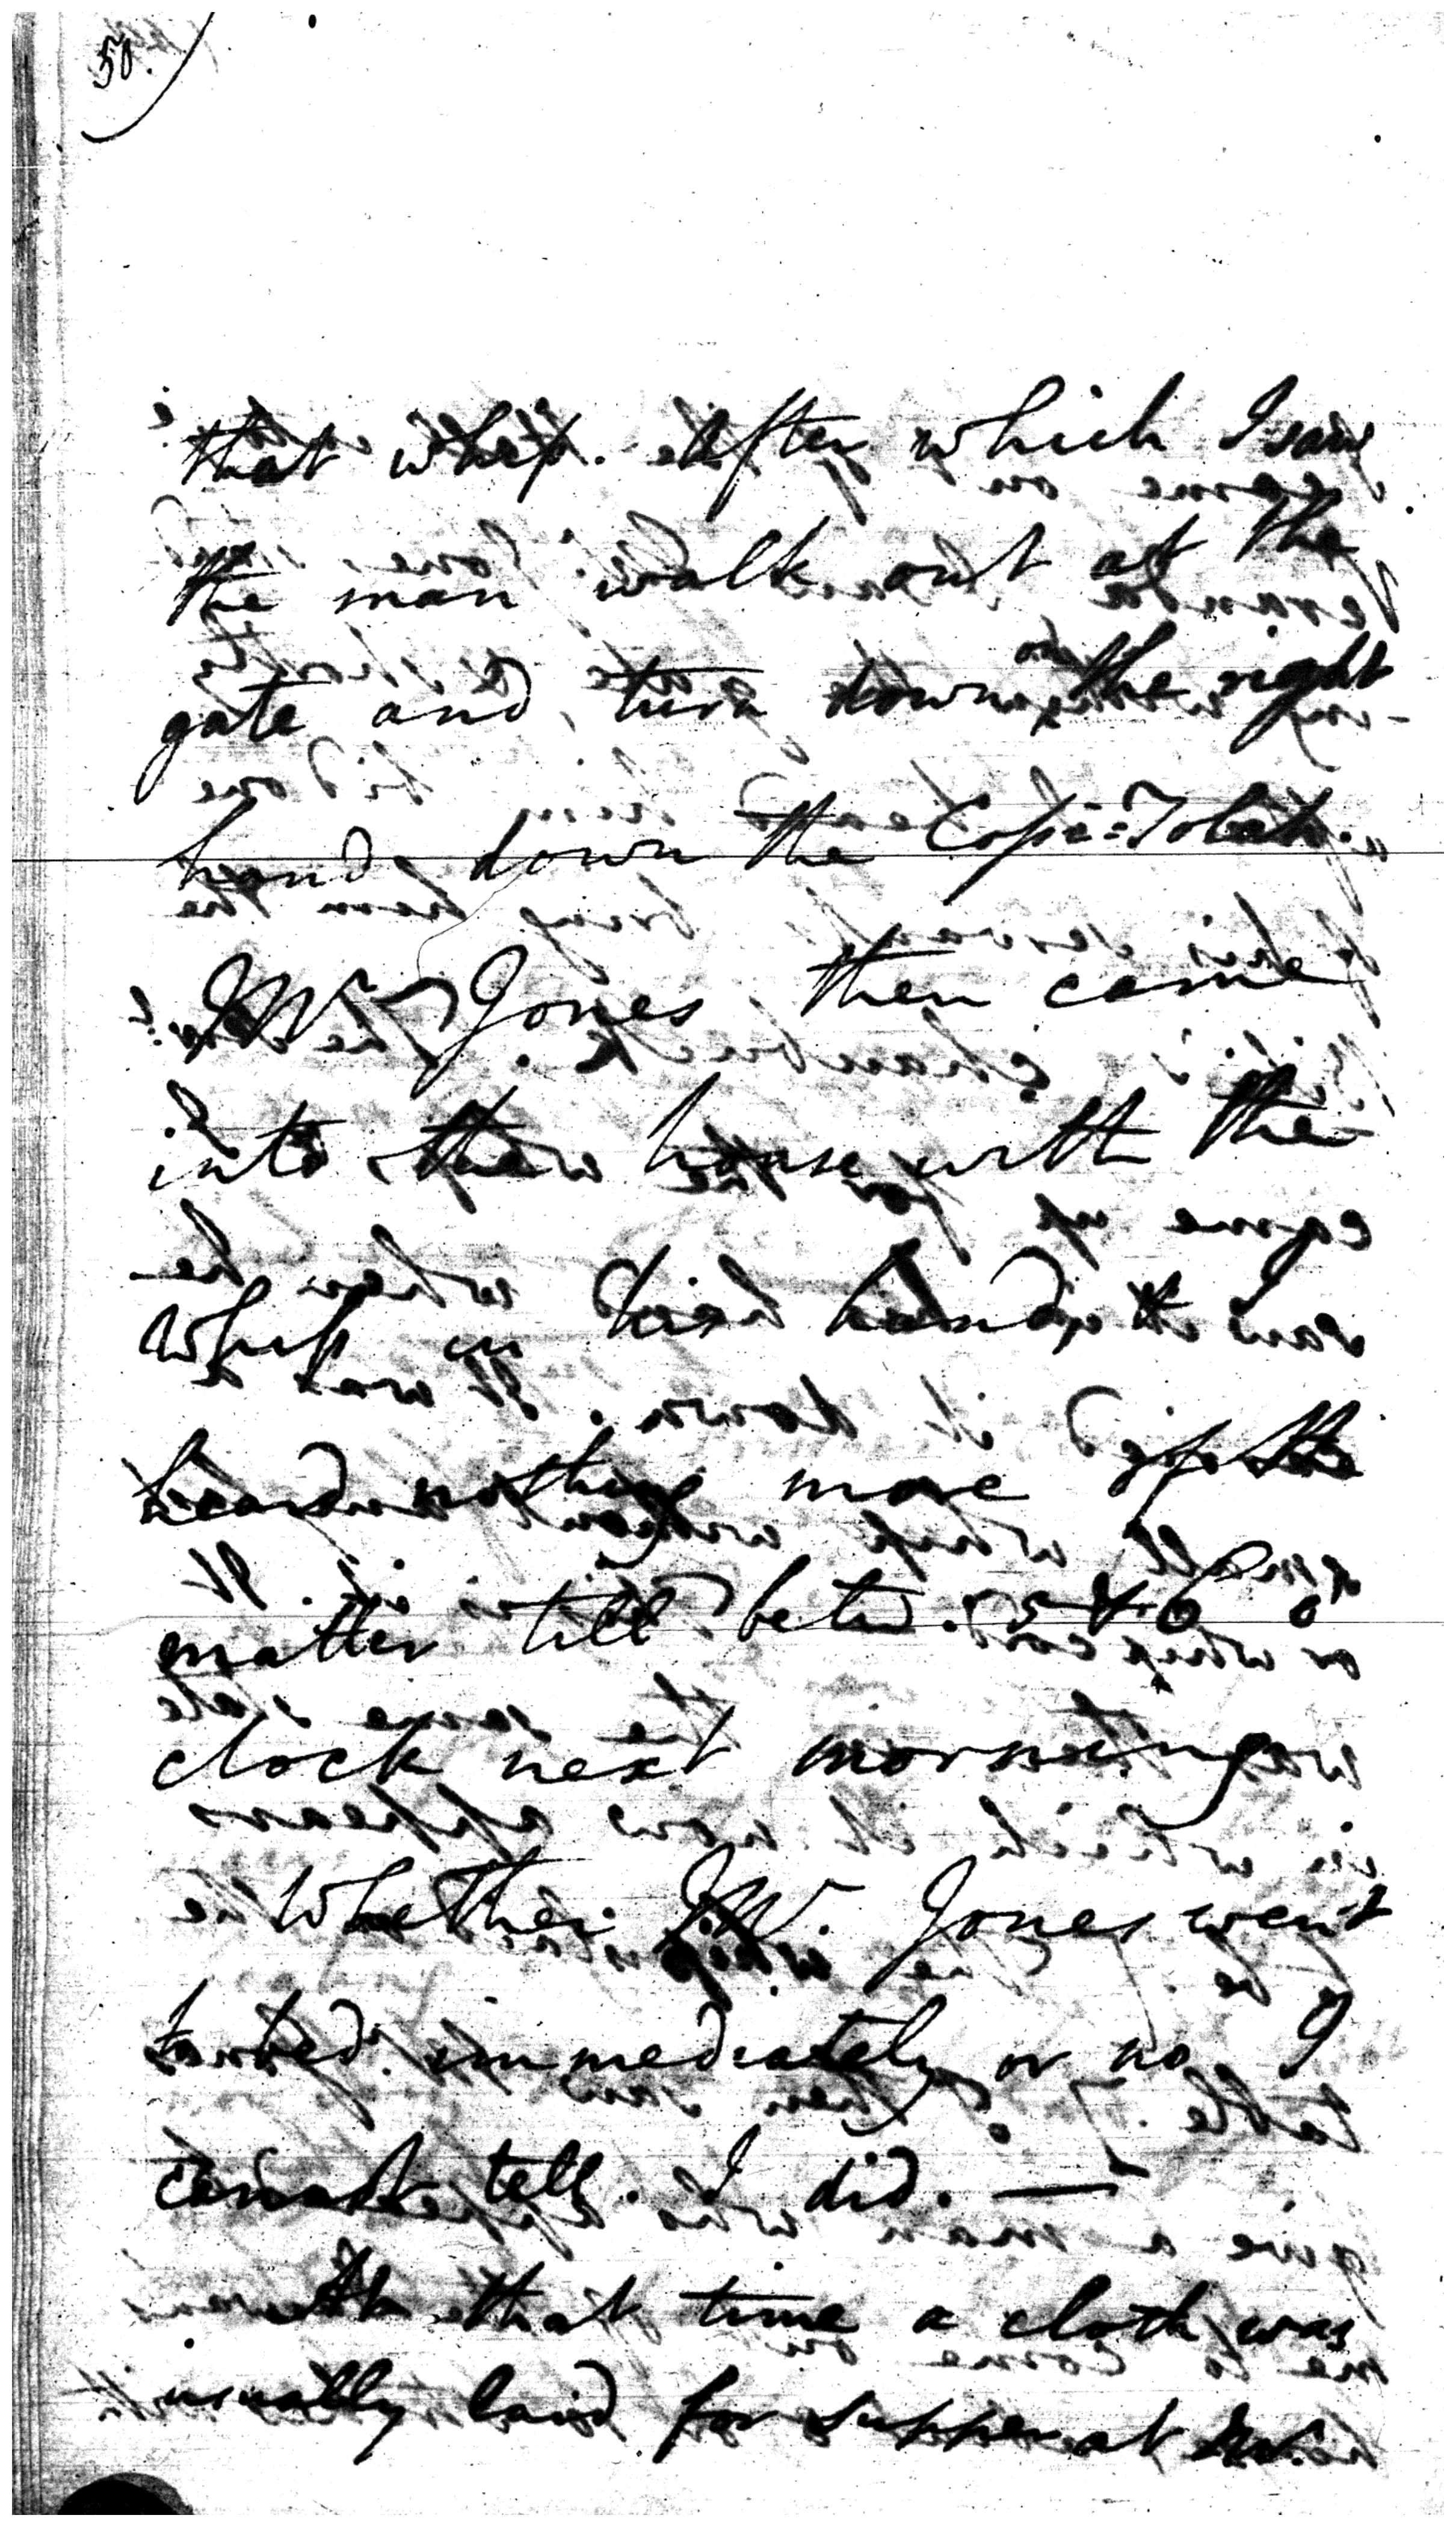 50.
that whip. After which I saw
the man walk out at the
gate and turn down to the right
hand down the Cossi=Tolah.
Sr. W. Jones then came
into the house with the
whip in his hand. I
heard nothing more of the
matter till betw. 5 & 6 o
clock next morning.
Whether Sr. W. Jones went
to bed immediately or no I
cannot tell. I did. —
At that time a cloth was
usually laid for supper at